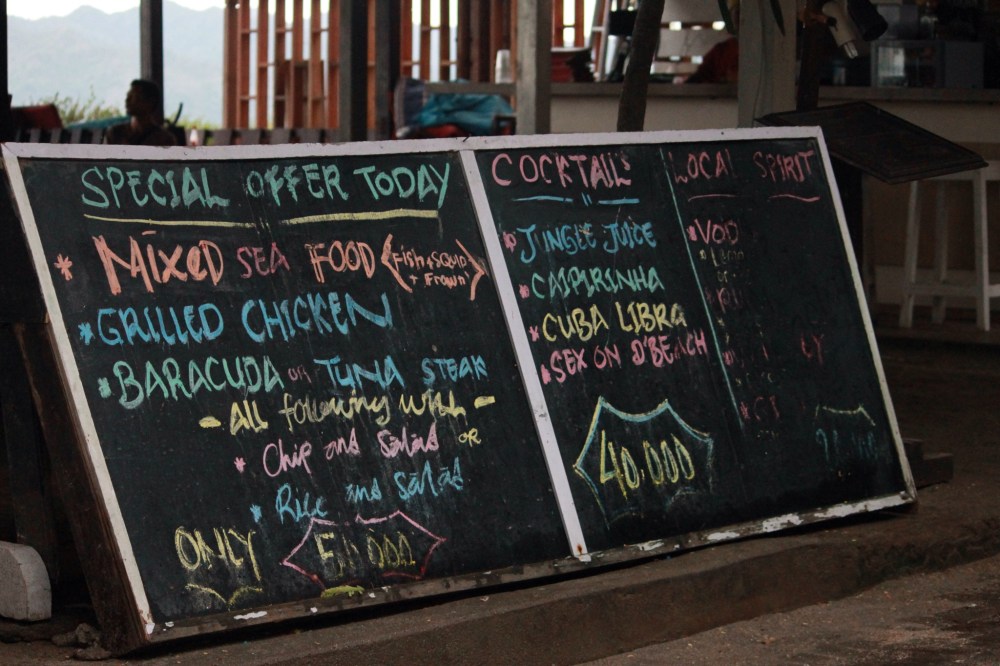 SPECIAL OFFER TODAY
* MixED SEA FOOD (Fish + SQUID
+ Frown)
* GRILLED CHICKEN
* BARACUDA OR TUNA STEAK
- ALL following will -
* Chip and Salad OR
* Rice and Salad
ONLY
COCKTAILS
* JUNGLE JUICE
* CAIPIRINHA
* CUBA LIBRA
* SEX ON D'BEACH
40,000
LOCAL SPIRIT